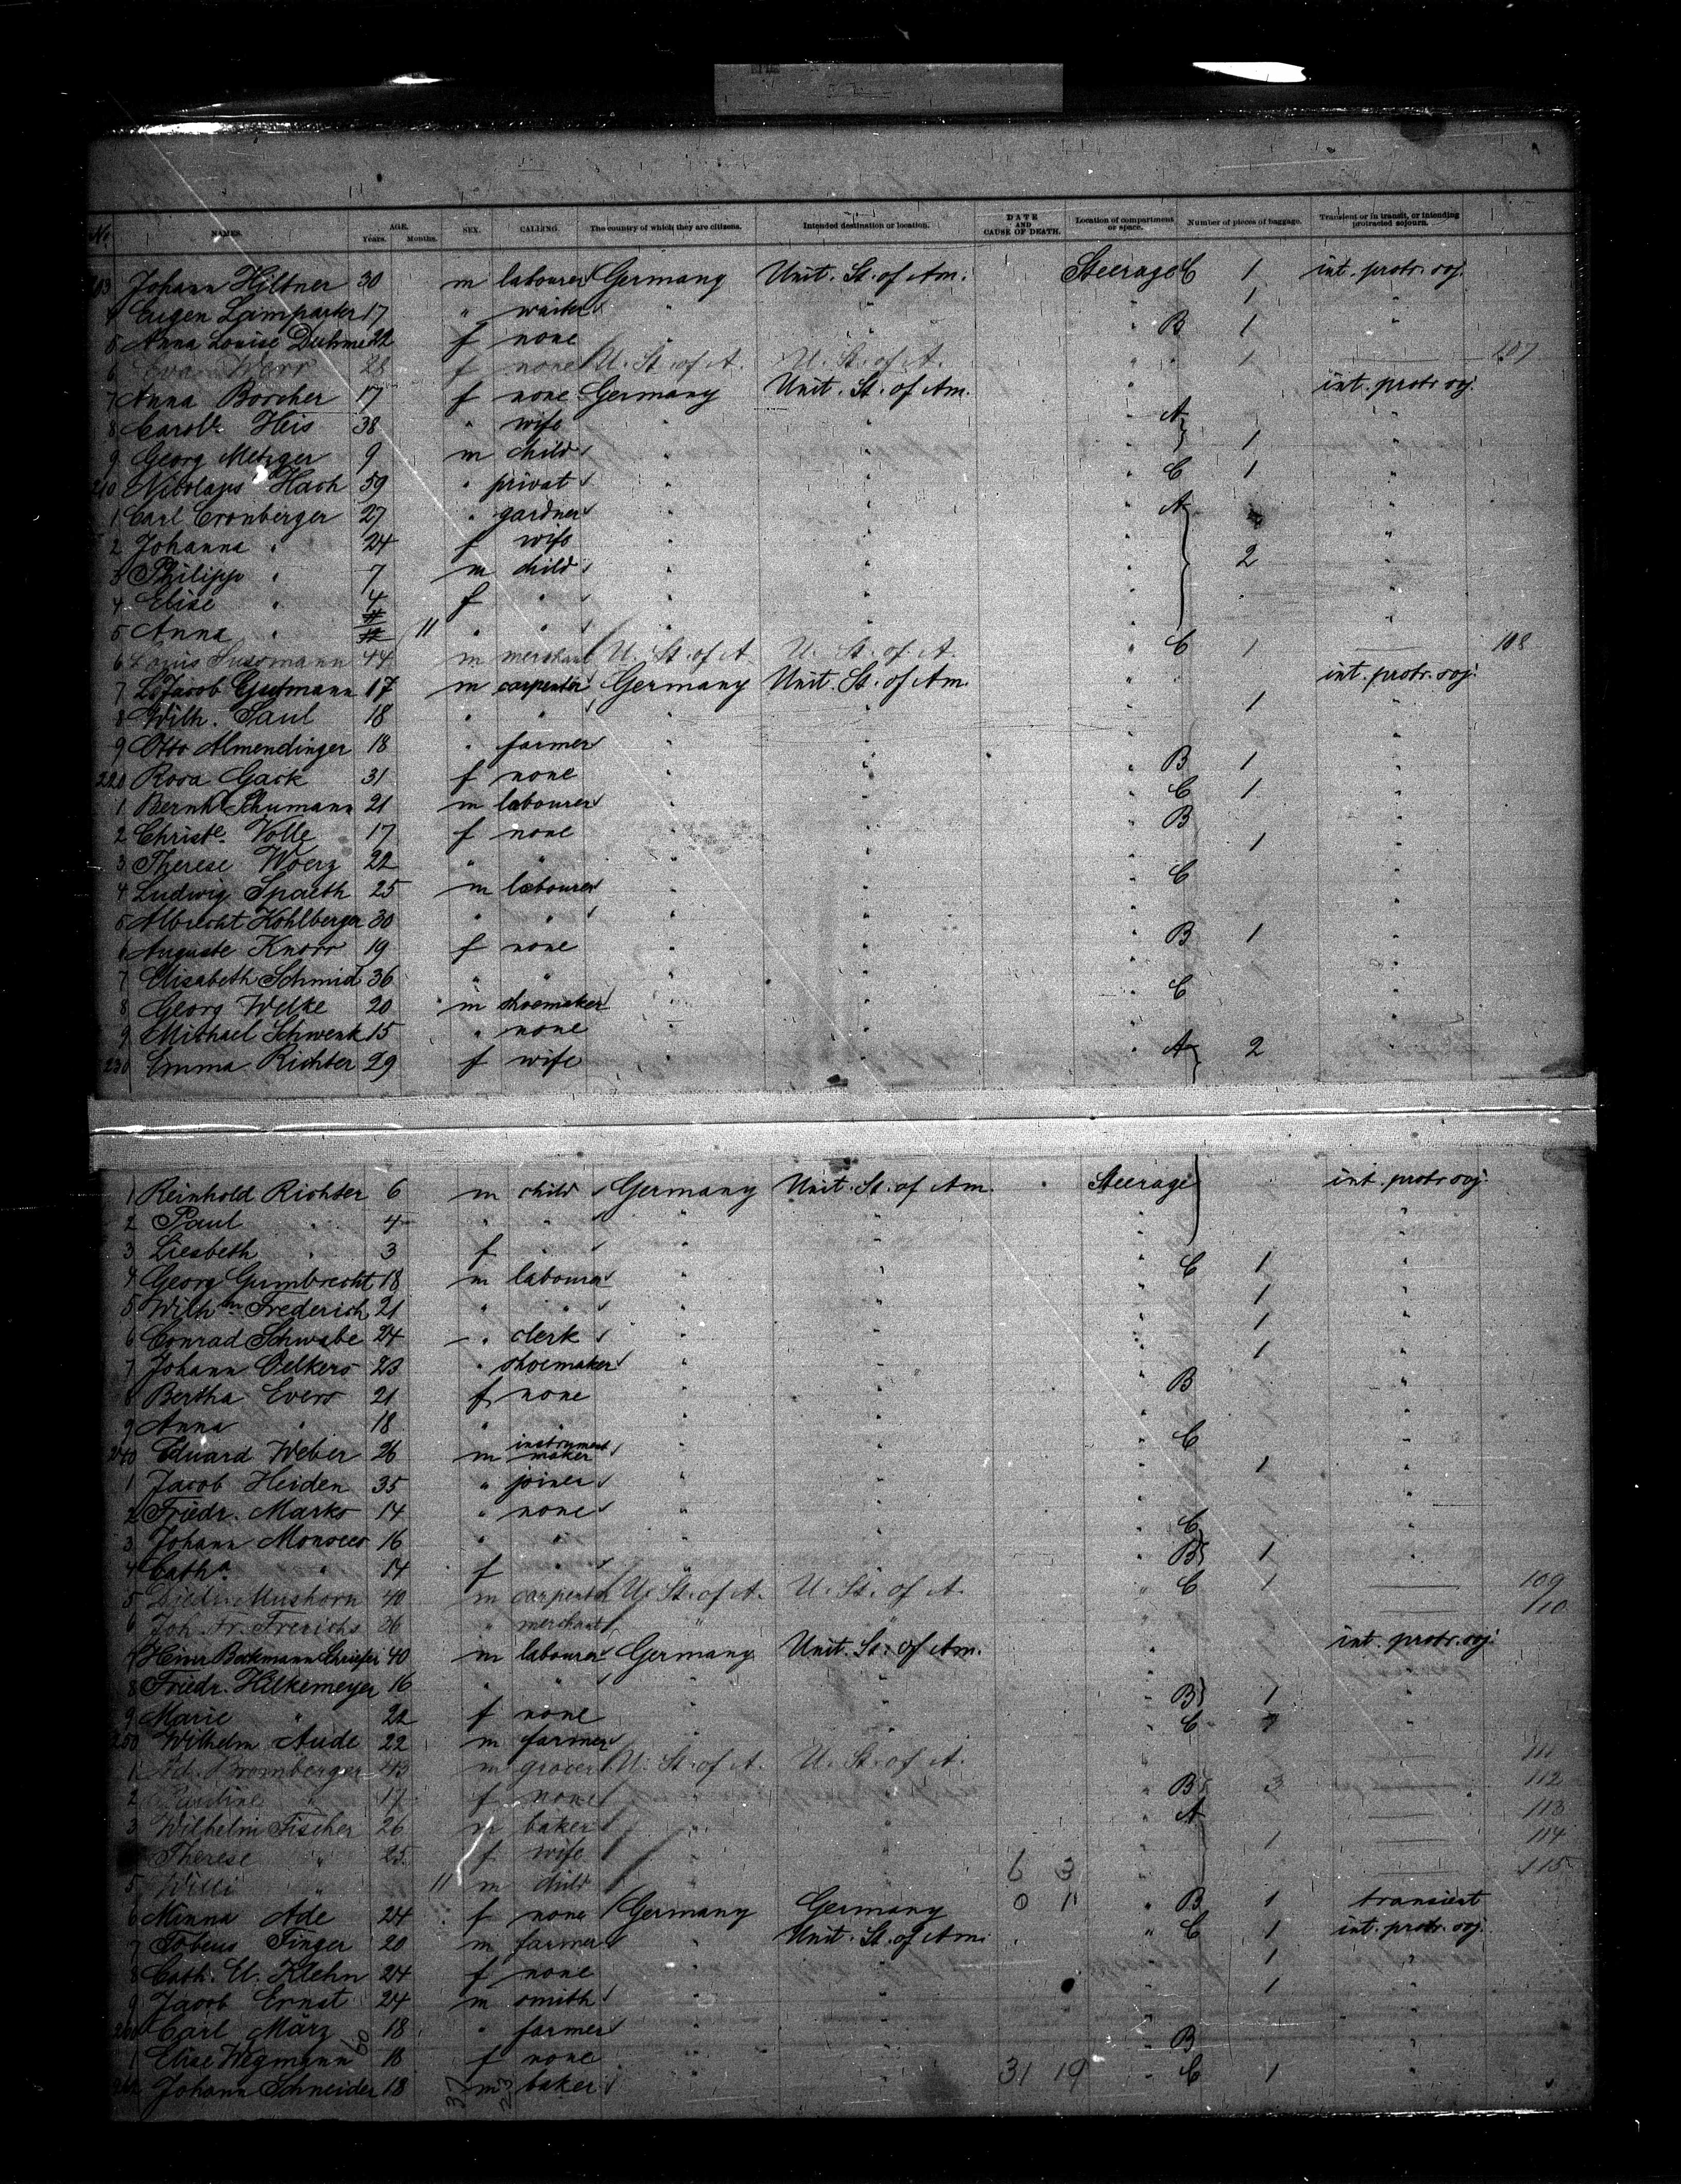 No NAMES. AGE. Years. Months. SEX. CALLING. The country of which they are citizens. Intended destination or location. DATE AND CAUSE OF DEATH. Location of compartment or space. Number of pieces of baggage. Transient or in transit, or intending protracted sojourn.
203 Johann Hiltner 30 m labourer Germany Unit. St. of Am. Steerage C 1 int. protr. soj.
4 Eugen Lamparter 17 " waiter " " " 1 "
5 Anna Louise 22 f none " " " B 1 "
6 Eva 28 f none U. St. of A. U. St. of A. " " 1 — 107
7 Anna Borcher 17 f none Germany Unit. St. of Am. " int. protr. soj.
8 Carole Heis 38 " wife " " " A "
9 Georg Metzger 9 m child " " " 1 "
210 Nikolaus Hach 59 " privat " " " C 1 "
1 Carl Cronberger 27 " gardner " " " A "
2 Johanna " 24 f wife " " " "
3 Philipp " 7 m child " " " 2 "
4 Elise " 4 f " " " " "
5 Anna " 11 " " " " " "
6 Louis Sussmann 44 m merchant U. St. of A. U. St. of A. " C 1 — 108
7 L. Jacob Gutmann 17 m carpenter Germany Unit. St. of Am. " int. protr. soj.
8 Wilh. Paul 18 " " " " " 1 "
9 Otto Almendinger 18 " farmer " " " "
220 Rosa Gack 31 f none " " " B 1 "
1 Bernh. Schumann 21 m labourer " " " C 1 "
2 Christe. Volle 17 f none " " " B "
3 Therese Woerz 22 " " " " " 1 "
4 Ludwig Spaeth 25 m labourer " " " C "
5 Albrecht Kohlberger 30 " " " " " "
6 Auguste Knorr 19 f none " " " B 1 "
7 Elisabeth Schmid 36 " " " " " "
8 Georg Welke 20 m shoemaker " " " C "
9 Michael Schwenk 15 " none " " " "
230 Emma Richter 29 f wife " " " A 2 "
1 Reinhold Richter 6 m child Germany Unit. St. of Am. Steerage int. protr. soj.
2 Paul " 4 " " " " " "
3 Liesbeth " 3 f " " " " "
4 Georg Gumbrecht 18 m labourer " " " C 1 "
5 Wilhm Frederich 21 " " " " " 1 "
6 Conrad Schwabe 24 " clerk " " " 1 "
7 Johann Oelkers 23 " shoemaker " " " 1 "
8 Bertha Evers 21 f none " " " B "
9 Anna " 18 " " " " " "
240 Eduard Weber 26 m instrument maker " " " C "
1 Jacob Heiden 35 " joiner " " " 1 "
2 Friedr. Marks 14 " none " " " C "
3 Johann Monsees 16 " " " " " B 1 "
4 Catha. " 14 f " " " " "
5 Diedr. Mushorn 40 m carpenter U. St. of A. U. St. of A. " C 1 — 109
6 Joh. Fr. Frerichs 36 " merchant " " — 110
7 Hinr Bockmann 40 m labourer Germany Unit. St. of Am. " int. protr. soj.
8 Friedr. Hilkemeyer 16 " " " " " B 1 "
9 Marie " 22 f none " " " "
250 Wilhelm Aude 22 m farmer " " " C 1 "
1 Ad. Bromberger 43 m grocer U. St. of A. U. St. of A. " — 111
2 Pauline " 17 f none " " " B 3 — 112
3 Wilhelm Fischer 26 m baker " " " A — 113
Therese " 25 f wife " " " 1 — 114
5 Willi " 11 m child " " 6 3 " — 115
6 Minna Ade 24 f none Germany Germany 0 11 " B 1 transient
7 Tobeus Finger 20 m farmer " Unit. St. of Am. " C 1 int. protr. soj.
8 Cath. U. Klehn 24 f none " " " 1 "
9 Jacob Ernst 24 m smith " " " 1 "
260 Carl März 18 " farmer " " " "
1 Elise Wegmann 18 f none " " " B "
262 Johann Schneider 18 m baker " " 31 19 " C 1 "
60 37 23